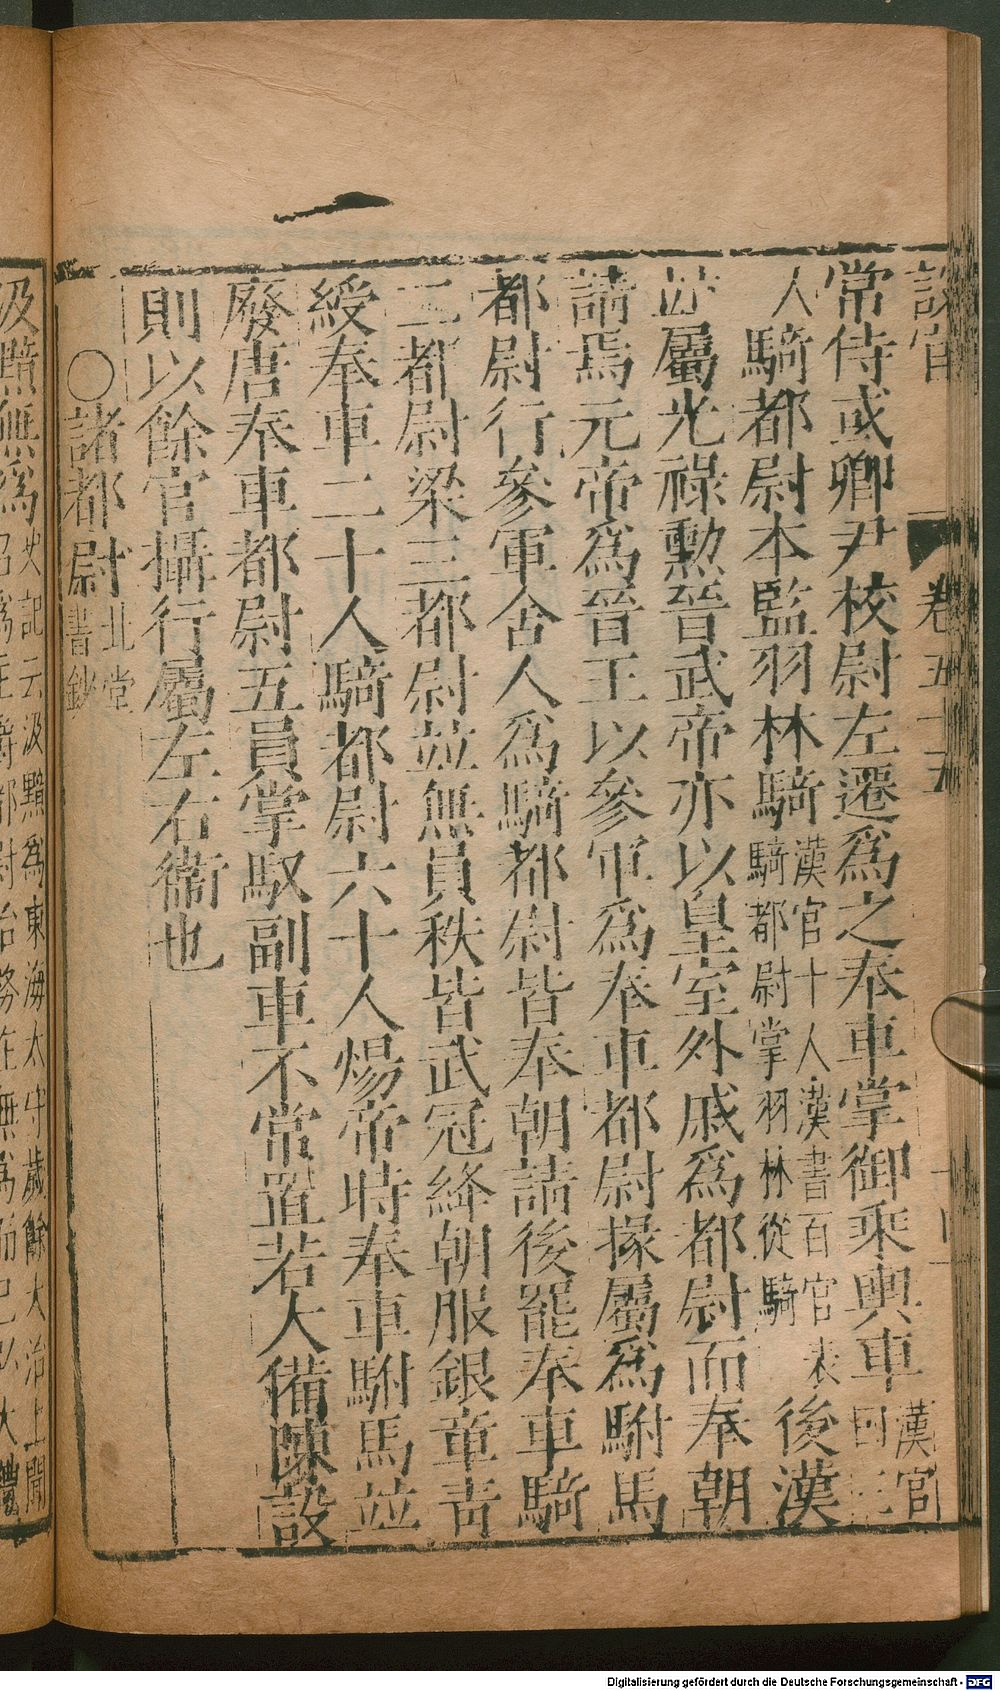 設官
卷五十五
常侍或卿尹校尉左遷爲之奉車掌御乘輿車漢官曰三
人騎都尉本監羽林騎漢官十人漢書百官表騎都尉掌羽林從騎後漢
並屬光祿勲晉武帝亦以皇室外戚爲都尉而奉朝
請焉元帝爲晉王以參軍爲奉車都尉掾屬爲駙馬
都尉行參軍舍人爲騎都尉皆奉朝請後罷奉車騎
二都尉梁三都尉竝無員秩皆武冠絳朝服銀章青
綬奉車二十人騎都尉六十人煬帝時奉車駙馬竝
廢唐奉車都尉五員掌馭副車不常置若大備陳設
則以餘官攝行屬左右衞也
〇諸都尉北堂書鈔
汲黯無爲史記云汲黯爲東海太守歲餘大治上聞召爲主爵都尉治務在無爲而已弘大體
Digitalisierung gefördert durch die Deutsche Forschungsgemeinschaft - DFG